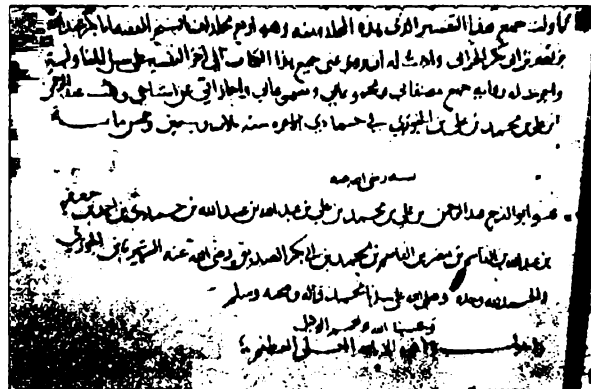 ناولت جميع هذا التفسير الذي هذه المجلدة منه وهو أربع مجلدات
بن أبي بكر الحراني وأذنت له أن يروي عني جميع هذا الكتاب إلى آخر التفسير على سبيل المناولة
وأجزت له رواية جميع مصنفاتي ومجموعاتي ومسموعاتي وإجازاتي عن مشايخي وكتب عبد الرحمن
ابن علي بن محمد بن علي بن الجوزي في جمادى الآخرة سنة ثلاث وسبعين وخمس مائة
نسبه رضي الله عنه
هو أبو الفرج عبد الرحمن بن علي بن محمد بن علي بن عبيد الله بن عبد الله بن حمادى بن أحمد بن جعفر
بن عبد الله بن القاسم بن النضر بن القاسم بن محمد بن أبي بكر الصديق رضي الله عنه الشهير بابن الجوزي
والحمد لله وحده وصلى الله على سيدنا محمد وآله وصحبه وسلم
وحسبنا الله ونعم الوكيل